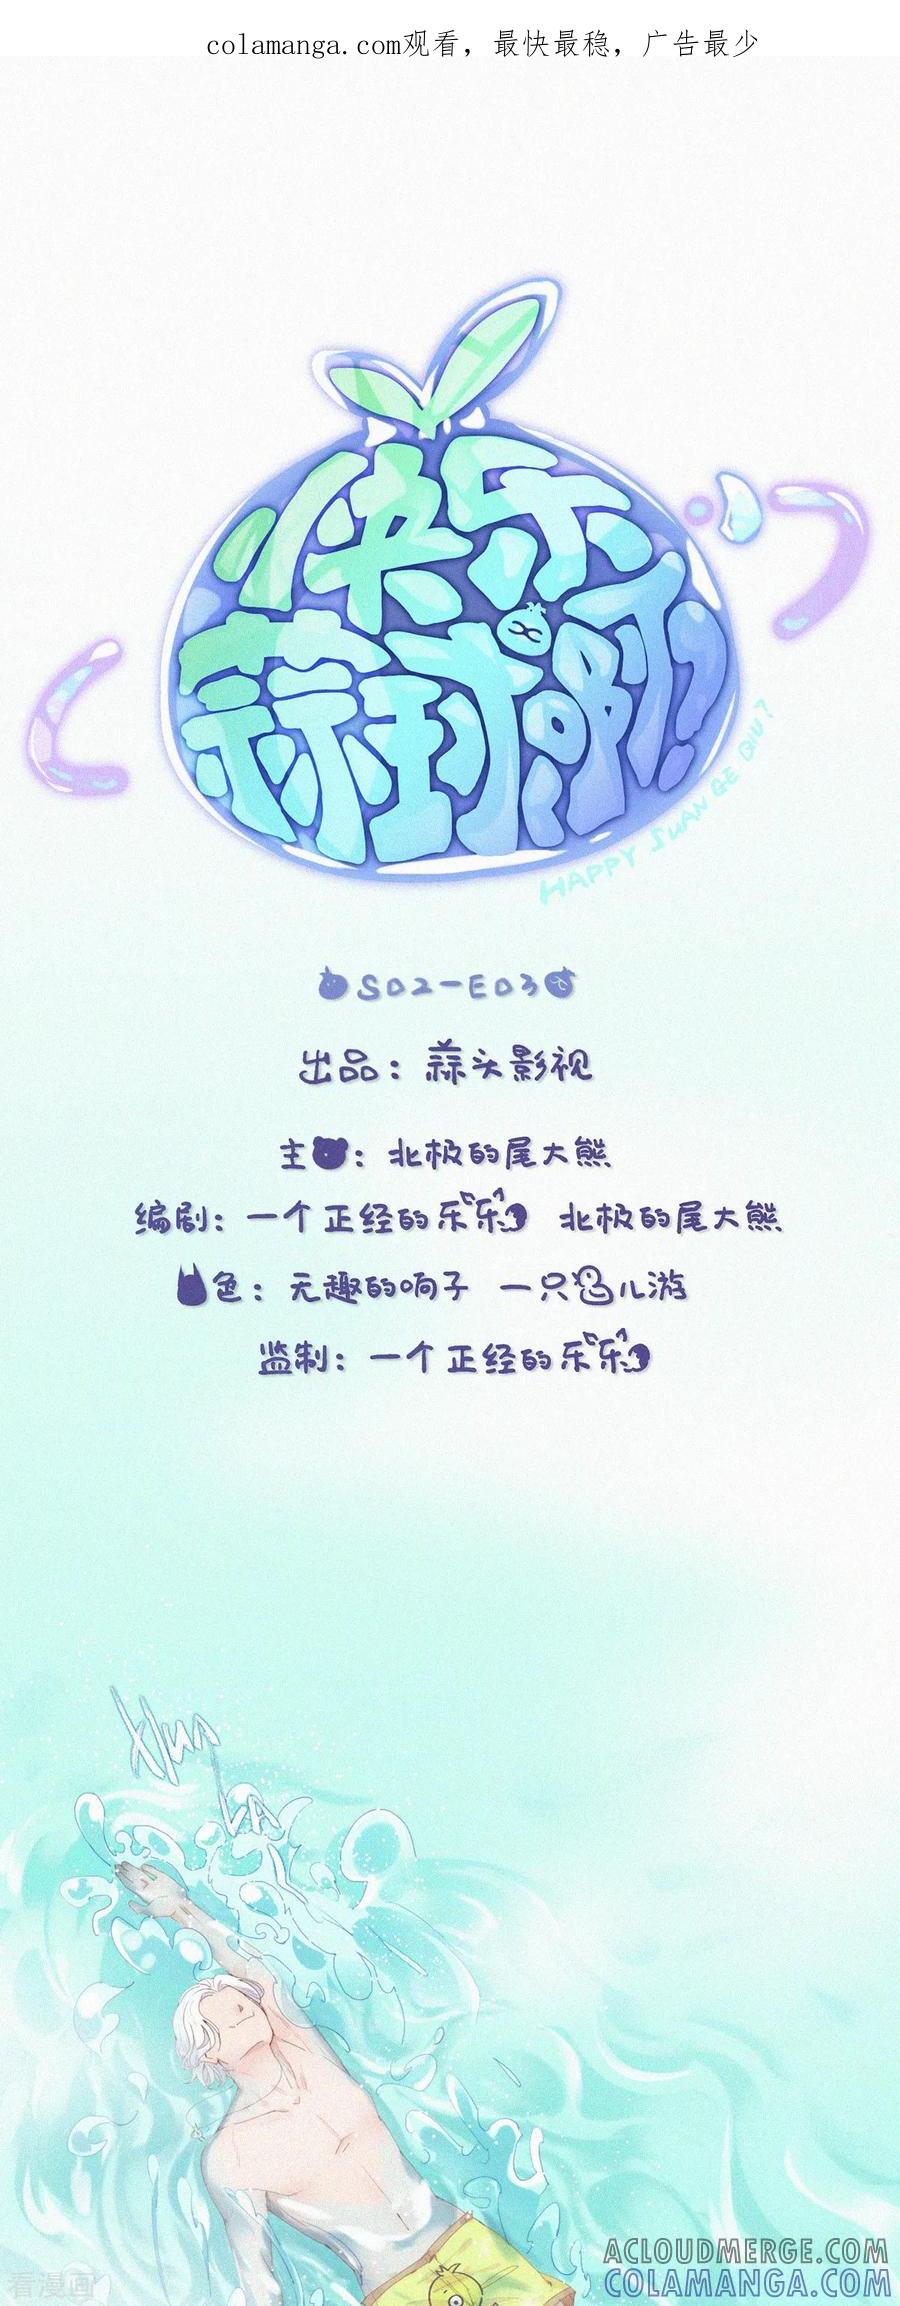 colamanga.com观看，最快最稳，广告最少
快乐
蒜球啊?
HAPPY SUAN GE QIU?
S02-E03
出品：蒜头影视
主：北极的尾大熊
编剧：一个正经的乐乐 北极的尾大熊
色：无趣的响子 一只 儿游
监制：一个正经的乐乐
HUA
LA
看漫画
ACLOUDMERGE.COM
COLAMANGA.COM